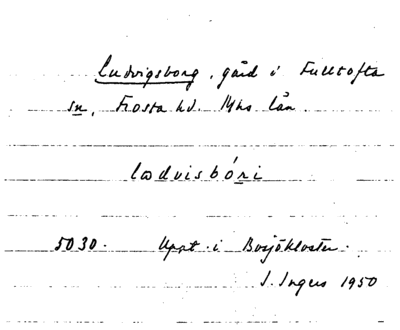 Ludvigsborg, gård i Fulltofta
sn, Frosta hd. Mhs län.
lodvisbóri
5030. Uppt. i Bosjökloster.
I. Ingers 1950